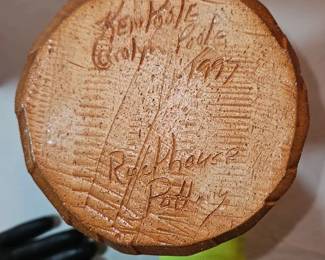 Ken Poole
Carolyn Poole
1997
Rockhouse
Pottery